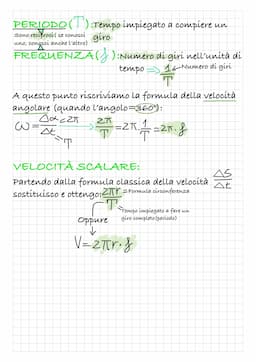 PERIODO(T): Tempo impiegato a compiere un giro
(Sono reciproci se conosci uno, conosci anche l'altro)
FREQUENZA(f): Numero di giri nell'unità di tempo → 1/T ← Numero di giri
A questo punto riscriviamo la formula della velocità
angolare (quando l'angolo=360°):
ω = Δα/Δt → 2π/T = 2π · 1/T = 2π · f
2π
T
VELOCITÀ SCALARE:
Partendo dalla formula classica della velocità ΔS/Δt
sostituisco e ottengo: 2πr/T
= Formula circonferenza
Tempo impiegato a fare un
giro completo(periodo)
Oppure
V = 2πr · f